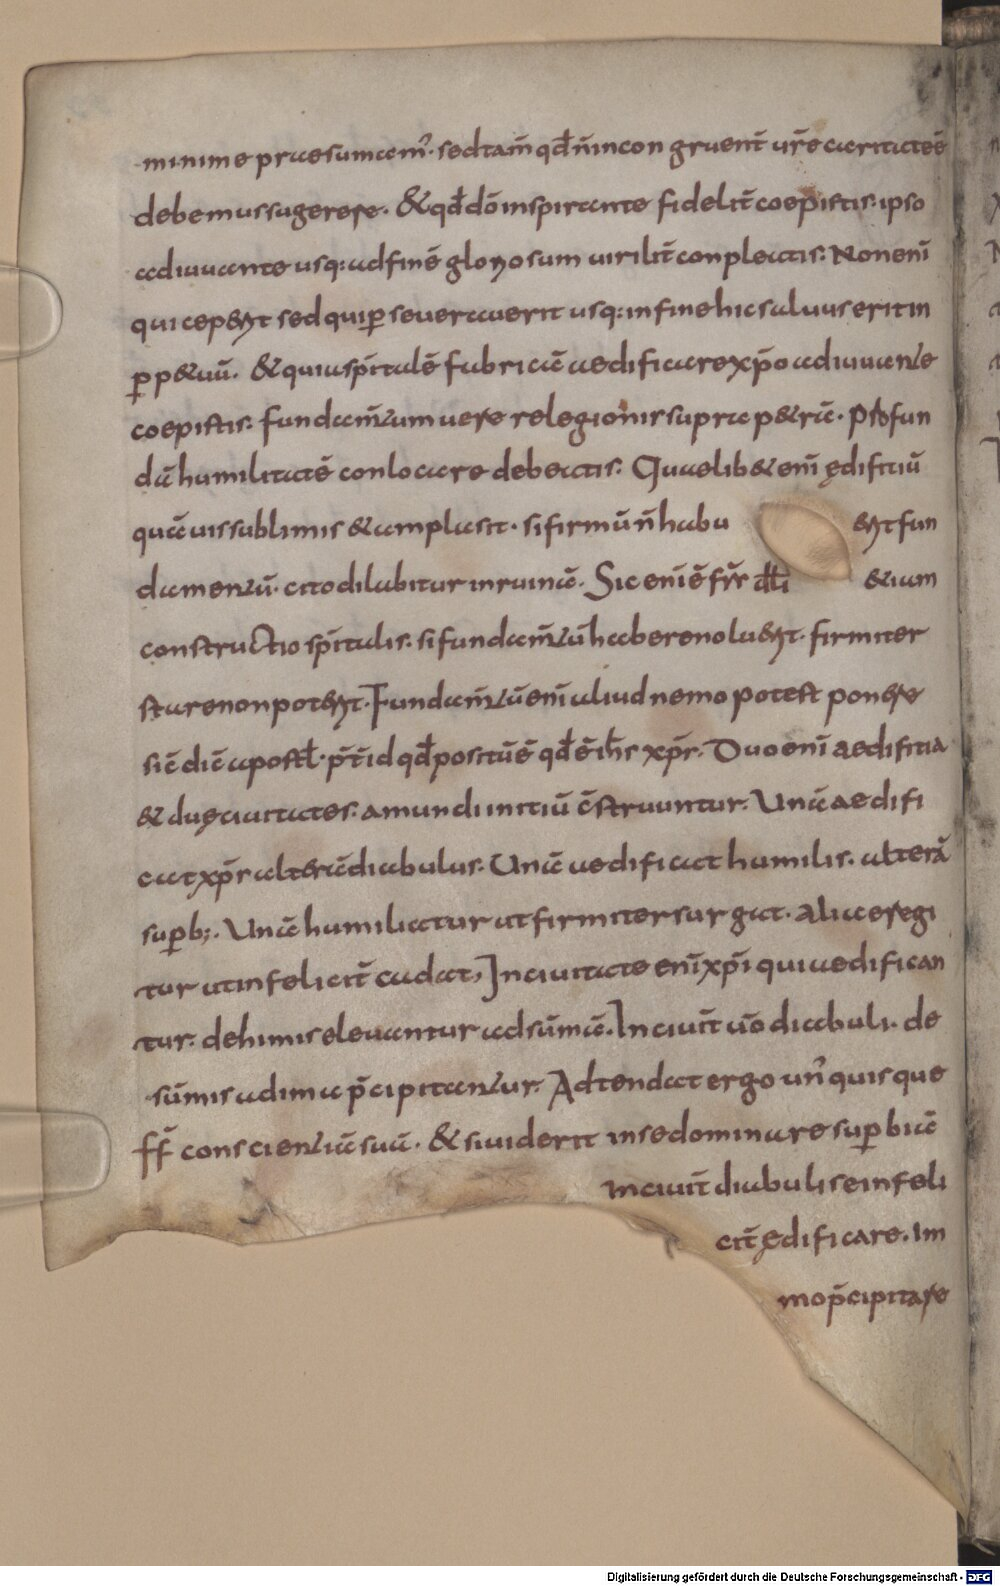 minime praesumam̄. sed tam̄ qđ n̄ incongruent̄ ur̄e caritateē
debemus sugerere. & qđ dō inspirante fidelit̄ coepistis. ipso
adiuuante usq: ad finē gloriosum uirilit̄ conpleatis: Non enī
qui cep&rit sed qui p̱seuerauerit usq: in fine hic saluus erit in
p̱p&uū. & quia sp̄italē fabricā aedificare xp̄o adiuuante
coepistis. fundam̄tum uere relegionis supra p&rā. profun
dā humilitatē conlocare debeatis. Quaelib& enī ędifitiū
quāuis sublimis & ampla sit. si firmū n̄ habu &rit fun
damentū. cito dilabitur in ruinā. Sic enī ē fr̄r &iam
constructio sp̄italis. si fundam̄tū habere nolu&rit. firmiter
stare non pot&rit. Fundam̄tū enī aliud nemo potest ponere
siē diē apostł. p̄t̄ id qđ positū ē qđ ē ih̄s xp̄s. Duo enī aedifitia
& duę ciuitates. a mundi initiū c̄struuntur. Unā aedifi
cat xp̄s alt&rā diabulus. Unā aedificat humilis. alterā
sup̱b;. Unā humiliatur ut firmiter surgat. alia eregi
tur ut infelicit̄ cadat, In ciuitate enī xp̄i qui aedifican
tur. de himis eleuantur ad sūmā. In ciuit̄ ūo diabuli. de
sūmis ad ima p̄cipitantur. Adtendat ergo un̄quisque
ff̄ conscientiā suā. & si uiderit in se dominare sup̱biā
in ciuit̄ diabuli se infeli
cit̄ ędificare. Im
mo p̄cipitare
Digitalisierung gefördert durch die Deutsche Forschungsgemeinschaft - DFG